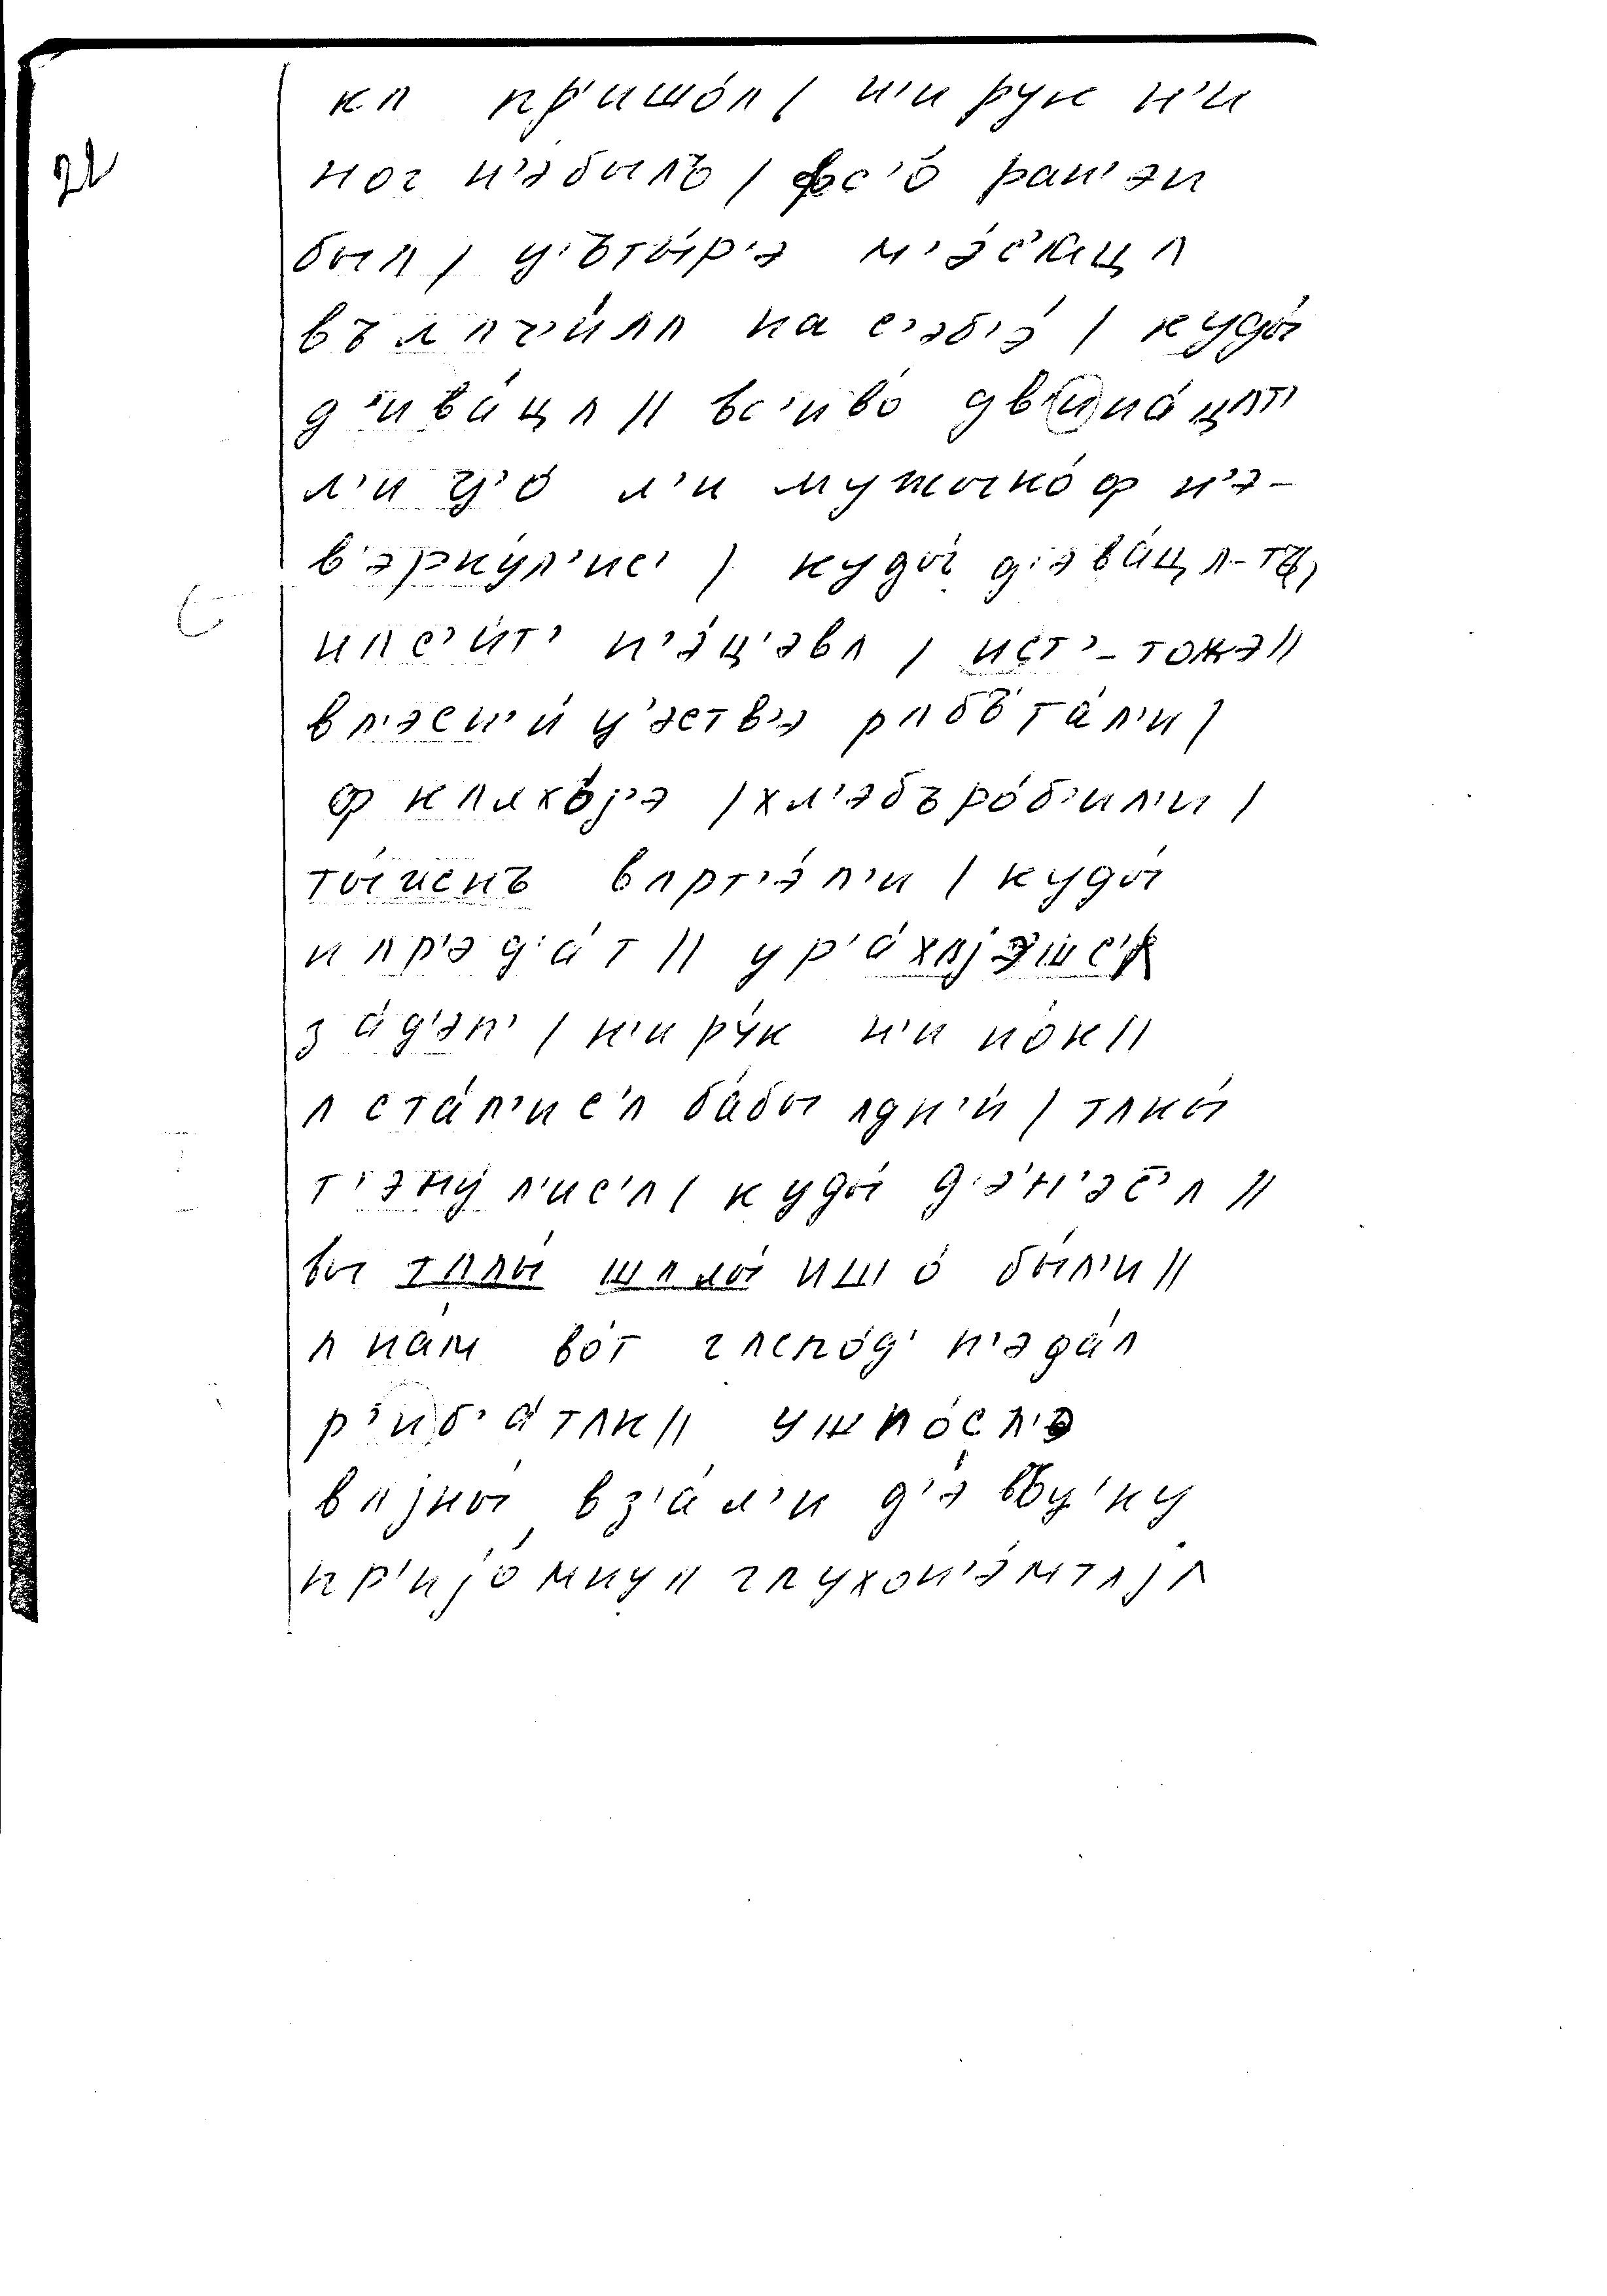 22
кʌ пр'ишо́л / н'и рук н'и
ног н'э́былъ / фс'о́ ран'эн
был / ц'ъты́р'э м'э́с'ицʌ
въʌʌч'и́лʌ на с'эб'э́ / куды́
д'ива́цʌ // вс'иво́ двина́цʌт'
л'и ц'о́ л'и мужыко́ф н'э-
в'эрну́л'ис' / куды́ д'эва́цʌ-тъ,
нʌс'и́т' н'э́ц'эвʌ / ист'-тожэ //
вл'эсн'и́ц'эств'э рʌбъта́л'и /
ф кʌлхо́j'э / хл'эбъро́б'ил'и /
ты́иснъ вʌрт'э́л'и / куды́
нʌр'эд'а́т // ур'а́хʌjэшс'ʌ
за́д'эн' / н'и ру́к н'и но́к //
ʌста́л'ис'ʌ ба́бы ʌдн'и́ / тʌкы́
т'эну́л'ис'ʌ / куды́ д'э́н'эс'ʌ //
вы тʌлы́ шʌлы́ ишо́ бы́л'и //
ʌ на́м во́т гʌспо́д' н'эда́л
р'иб'а́тʌк // уж по́сл'э
вʌjны́ вз'а́л'и д'э́въц'ку
пр'иjо́мну // глухон'э́мтʌjʌ